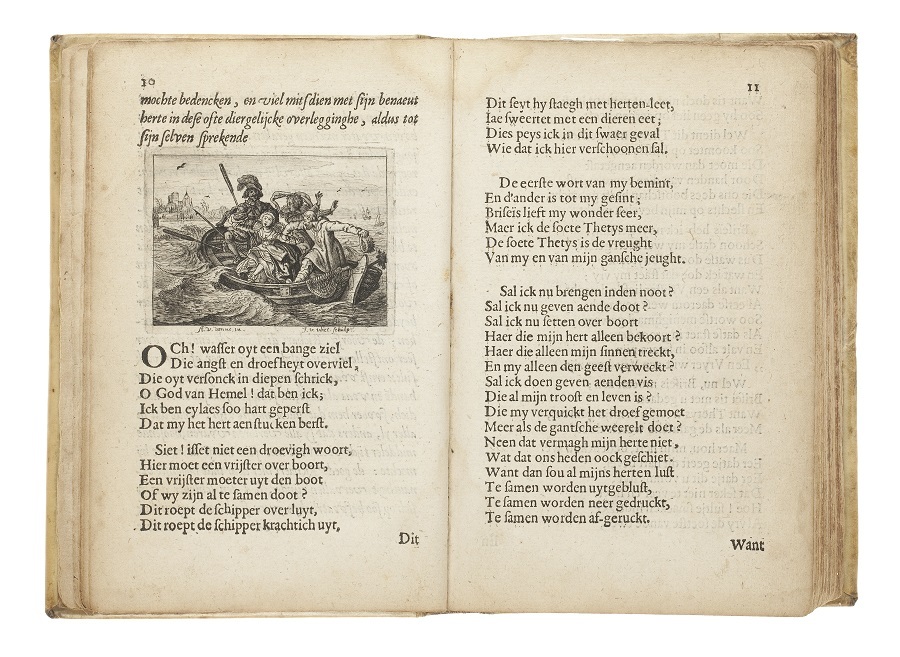 10
mochte bedencken, en viel mitsdien met sijn benaeut
herte in dese ofte diergelijcke overlegginghe, aldus tot
sijn selven sprekende
OCh! wasser oyt een bange ziel
Die angst en droefheyt overviel,
Die oyt versonck in diepen schrick,
O God van Hemel! dat ben ick;
Ick ben eylaes soo hart geperst
Dat my het hert aen stucken berst.
Siet! isset niet een droevigh woort,
Hier moet een vrijster over boort,
Een vrijster moeter uyt den boot
Of wy zijn al te samen doot?
Dit roept de schipper over luyt,
Dit roept de schipper krachtich uyt,
Dit
11
Dit seyt hy staegh met herten-leet,
Iae sweertet met een dieren eet;
Dies peys ick in dit swaer geval
Wie dat ick hier verschoonen sal.
De eerste wort van my bemint,
En d'ander is tot my gesint;
Briseïs lieft my wonder seer,
Maer ick de soete Thetys meer,
De soete Thetys is de vreught
Van my en van mijn gansche jeught.
Sal ick nu brengen inden noot?
Sal ick nu geven aende doot?
Sal ick nu setten over boort
Haer die mijn hert alleen bekoort?
Haer die alleen mijn sinnen treckt,
En my alleen den geest verweckt?
Sal ick doen geven aenden vis
Die al mijn troost en leven is?
Die my verquickt het droef gemoet
Meer als de gantsche weerelt doet?
Neen dat vermagh mijn herte niet,
Wat dat ons heden oock geschiet.
Want dan sou al mijns herten lust
Te samen worden uytgeblust,
Te samen worden neer gedruckt,
Te samen worden af-geruckt.
Want